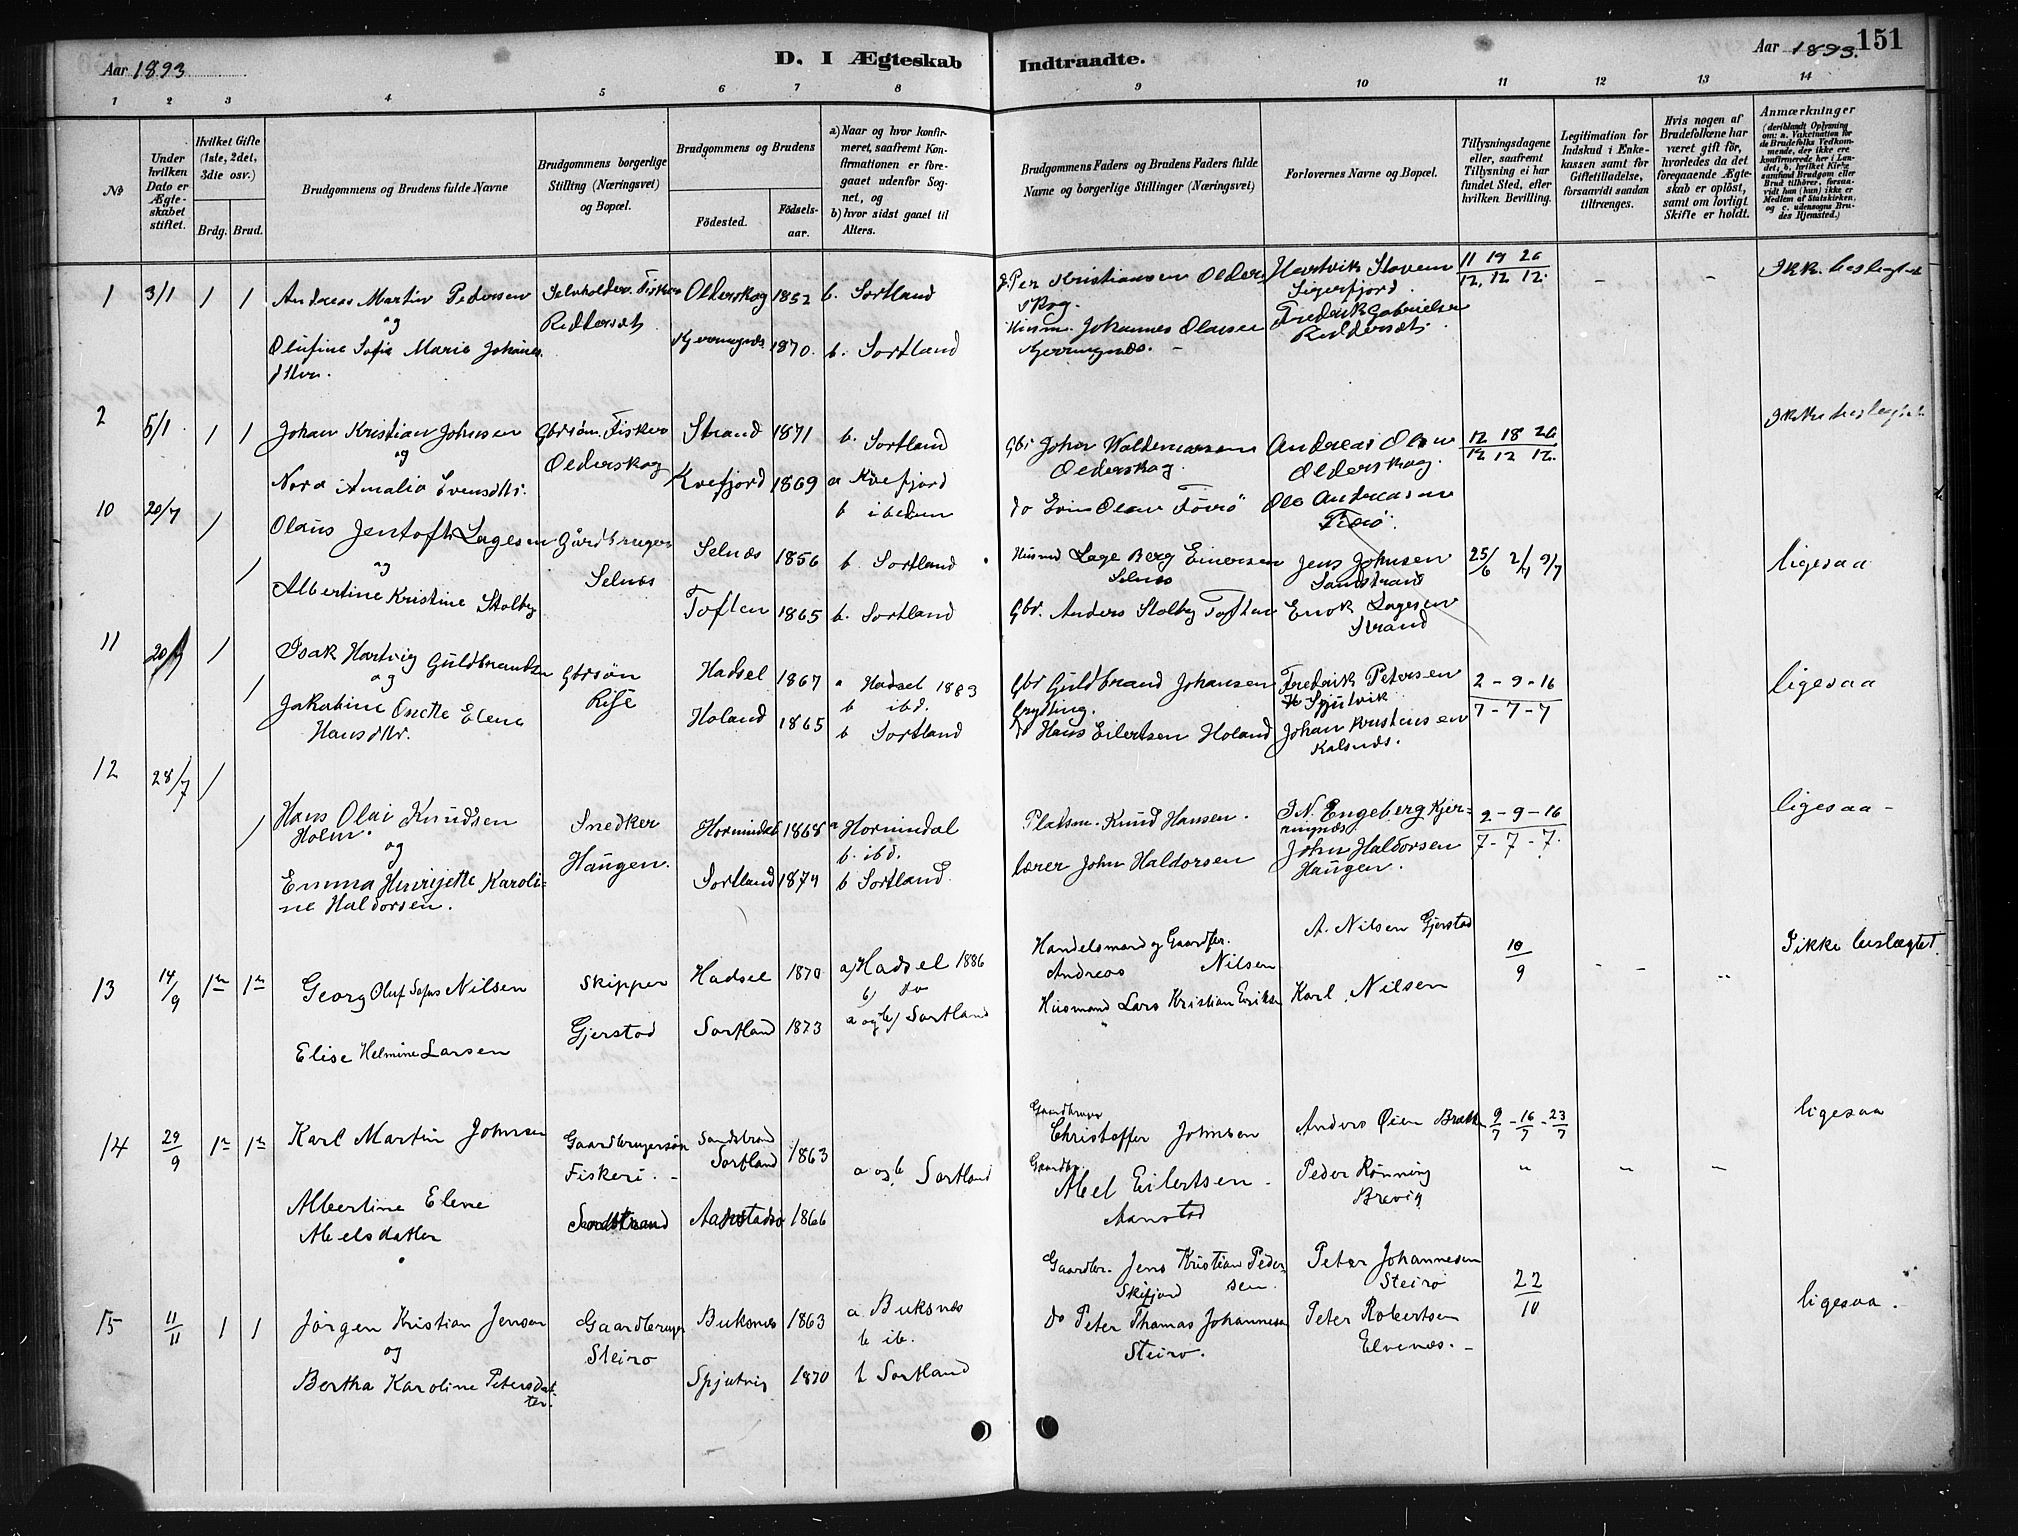 Aar 1893
D. I Ægteskab
Indtraadte.
Aar 1893.
151
1
2
3
4
5
6
7
8
9
10
11
12
13
14
No
Under hvilken Dato er Ægteskabet stiftet.
Hvilket Gifte (1ste, 2det, 3die osv.)
Brdg.
Brud.
Brudgommens og Brudens fulde Navne
Brudgommens borgerlige Stilling (Næringsvei) og Bopæl.
Brudgommens og Brudens
Födested.
Födselsaar.
a) Naar og hvor konfirmeret, saafremt Konfirmationen er foregaaet udenfor Sognet, og
b) hvor sidst gaaet til Alters.
Brudgommens Faders og Brudens Faders fulde Navne og borgerlige Stillinger (Næringsvei)
Forlovernes Navne og Bopæl.
Tillysningsdagene eller, saafremt Tillysning ei har fundet Sted, efter hvilken Bevilling.
Legitimation for Indskud i Enkekassen samt for Giftetilladelse, forsaavidt saadan tiltrænges.
Hvis nogen af Brudefolkene har været gift för, hvorledes da det foregaaende Ægteskab er oplöst, samt om lovligt Skifte er holdt.
Anmærkninger
(deriblandt Oplysning om: a. Vakcination for de Brudefolks Vedkommende, der ikke ere konfirmerede her i Landet, b. hvilket Kirkesamfund Brudgom eller Brud tilhörer, forsaavidt han (hun) ikke er Medlem af Statskirken, og c. udensogns Brudes Hjemsted.)
1 3/1 1 1 Andreas Martin Pedersen Selvholder. Fisker Olderskog 1852 b. Sortland Per Kristiansen Olderskog. Hartvik Stoven Sigerfjord 11 19 26 / 12. 12 12. Ikke beslegtet
og
Olufine Sofie Marie Johannesdtter. 1870. b. Sortland Husm. Johannes Olausen Frederik Gabrielsen
2 5/1 1 1 Johan Kristian Johnsen Gbrsøn. Fisker Strand 1871 b. Sortland Gbr John Waldemarsen Olderskog. Andreas Olsen Olderskog. 12 18 26 / 12 12 12. Ikke beslegtet
og
Olderskog
Nora Amalia Evensdtr. Kvefjord 1869 a Kvefjord b ibidem do Even Olsen Ole Andreasen
10 20/7 1 Olaus Jentoft Lagesen Gårdbruger Selnæs 1856 b. Sortland Husmd Lage Berg Einersen Selnæs Jens Johnsen Sandstrand 25/6 2/7 9/7 ligesaa
og
Selnæs
1 Albertine Kristine Stolby Toften 1865 b. Sortland Gbr. Anders Stolby Toften Enok Lagesen Strand
11 20/7 1 Isak Hartvig Guldbrandsen Gbrsøn Hadsel 1867 a Hadsel 1883 b ibd. Gbr Guldbrand Johansen Frederik Petersen Spjutvik 2 - 9 - 16 / 7 - 7 - 7 ligesaa
og
1 Jakobine Onette Elene Hansdtr. Holand 1865 b Sortland Hans Eilertsen Holand Johan Kristensen
12 28/7 1 Hans Olai Knudsen Holm. Snedker Hornindal 1868 a Hornindal b. ibd. Pladsm. Knud Hansen. I. N. Engeberg Kjerringnæs 2 - 9 - 16 / 7 - 7 - 7. ligesaa -
og
Haugen.
1 Emma Henrijette Karoline Haldorsen. Sortland 1874 b Sortland. Lærer John Haldorsen John Haldorsen Haugen.
13 14/9 1ste 1ste Georg Oluf Sofus Nilsen Skipper Hadsel 1870 a) Hadsel 1886 b) do Handelsmand og Gaardbr. Andreas Nilsen A. Nilsen Gjerstad 10/9 Ikke beslægtet.
Gjerstad
Elise Helmine Larsen Sortland 1873 a og b) Sortland Husmand Lars Kristian Eriksen Karl Nilsen
14 29/9 1ste 1ste Karl Martin Johnsen Gaardbrugersøn Fiskeri. - Sandstrand Sortland 1863 a og b Sortland Gaardbruger Christoffer Johnsen Anders Øien 9/7 - 16/7 - 23/7 ligesaa
Sandstrand
Albertine Elene Abelsdatter Aanstadso 1866 Gaardbr Abel Eilertsen. Aanstad Peder Rønning Brevig
15 11/11 1 1 Jørgen Kristian Jensen Gaardbruger Buksnæs 1863 a Buksnæs b ib. Gaardbr. Jens Kristian Pedersen. Skifjord Peter Johannesen Steiro 22/10 ligesaa.
og
Steiro
Bertha Karoline Petersdatter. Spjutvig 1870 b Sortland do Peter Thomas Johannesen Steiro. Peter Robertsen Elvenæs. -